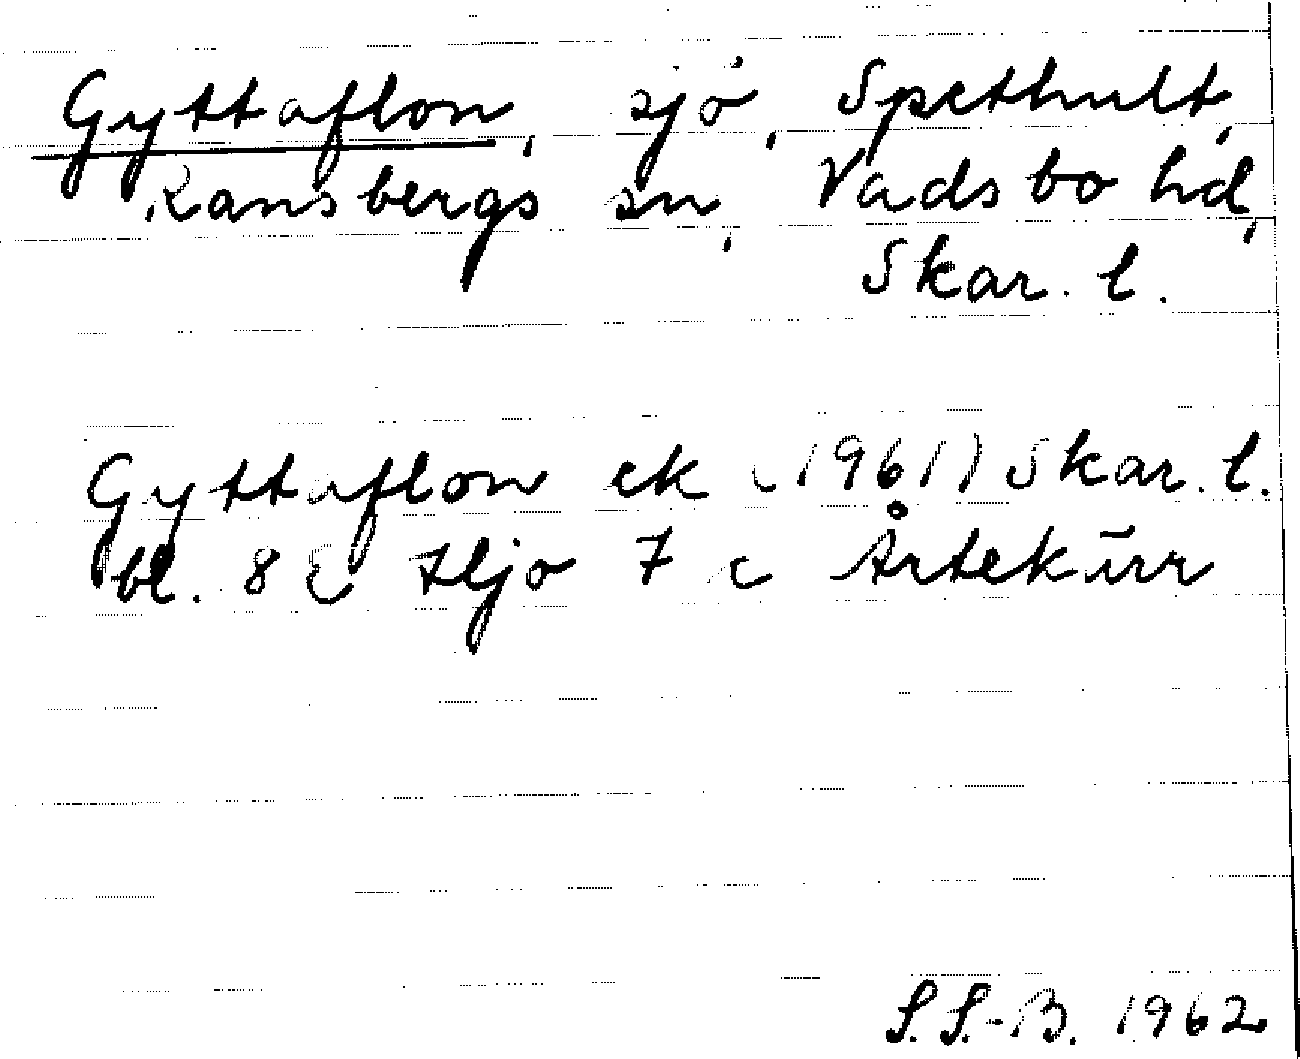 Gyttaflon, sjö, Spethult,
Ransbergs sn, Vadsbo hd,
Skar. l.
Gyttaflon ek (1961) Skar. l.
bl. 8 E Hjo 7 c
S.S.-B. 1962